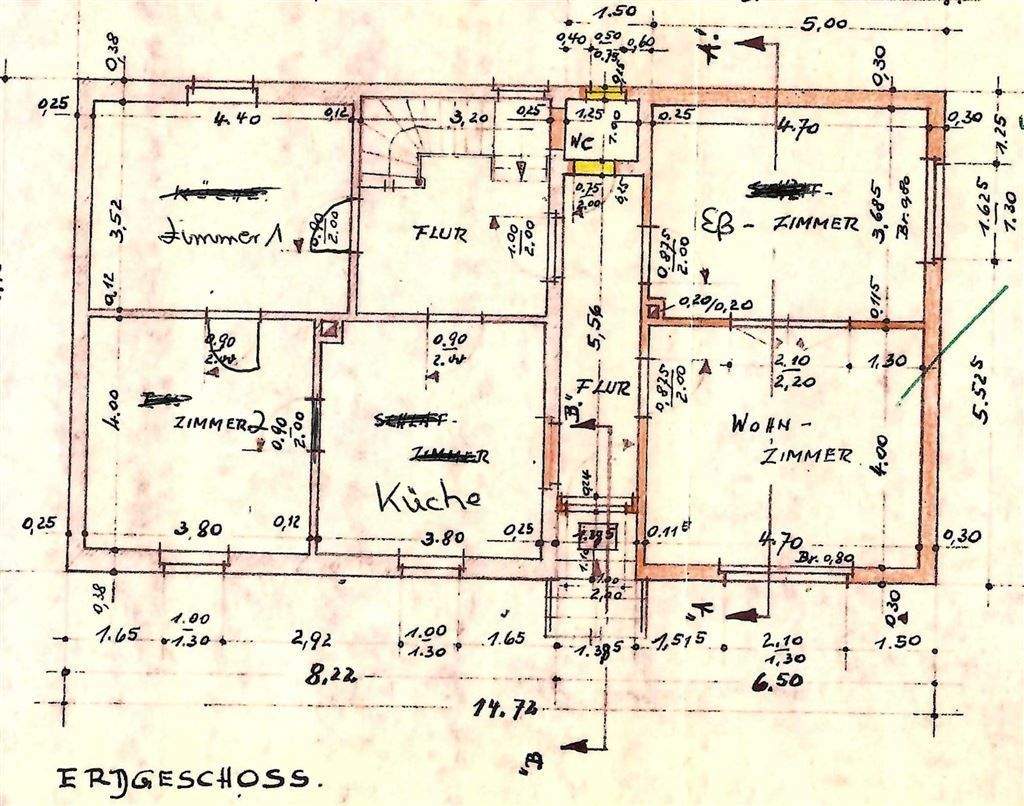 1.50
5,00
0,40
0,50
0,75
0,60
A!
0,38
0,30
0,25
4.40
0,12
3,20
0,25
1,25
WC
1.00
0.25
4.70
0,30
1.25
Zimmer 1
3,52
0,90
2.00
FLUR
1.00
2.00
0,75
2.00
Eß - ZIMMER
3,685
Br. 0,86
1.625
7.30
0,875
2.00
0,12
0,20/0,20
0,115
0,90
2.00
0,90
2.00
5,56
2.10
2,20
1,30
5.525
4.00
ZIMMER 2
0,90
2.00
SCHLAF-
ZIMMER
Küche
FLUR
"B"
0,875
2.00
WOHN-
ZIMMER
4.00
0,24
0,25
3,80
0,12
3.80
0,25
1.385
0.11⁵
4.70
Br. 0,80
0,30
1.10
1.00
2,00
0,38
"A"
0,30
1.65
1.00
1.30
2,92
1.00
1.30
1.65
1.385
1,515
2,10
1,30
1.50
8,22
6.50
14.72
"B
ERDGESCHOSS.